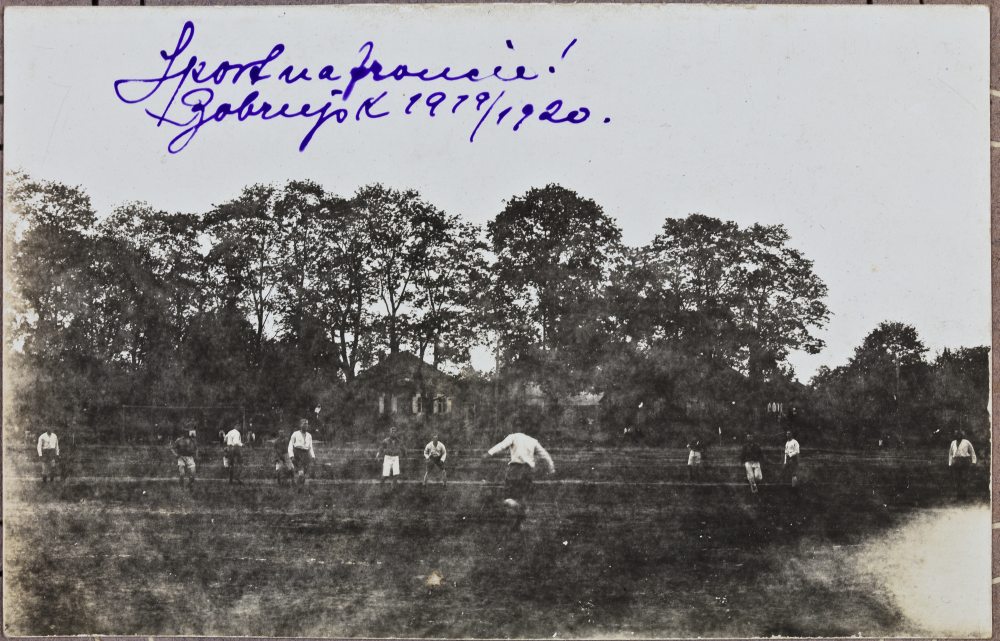 Sport na froncie!
Bobrujsk 1919/1920.